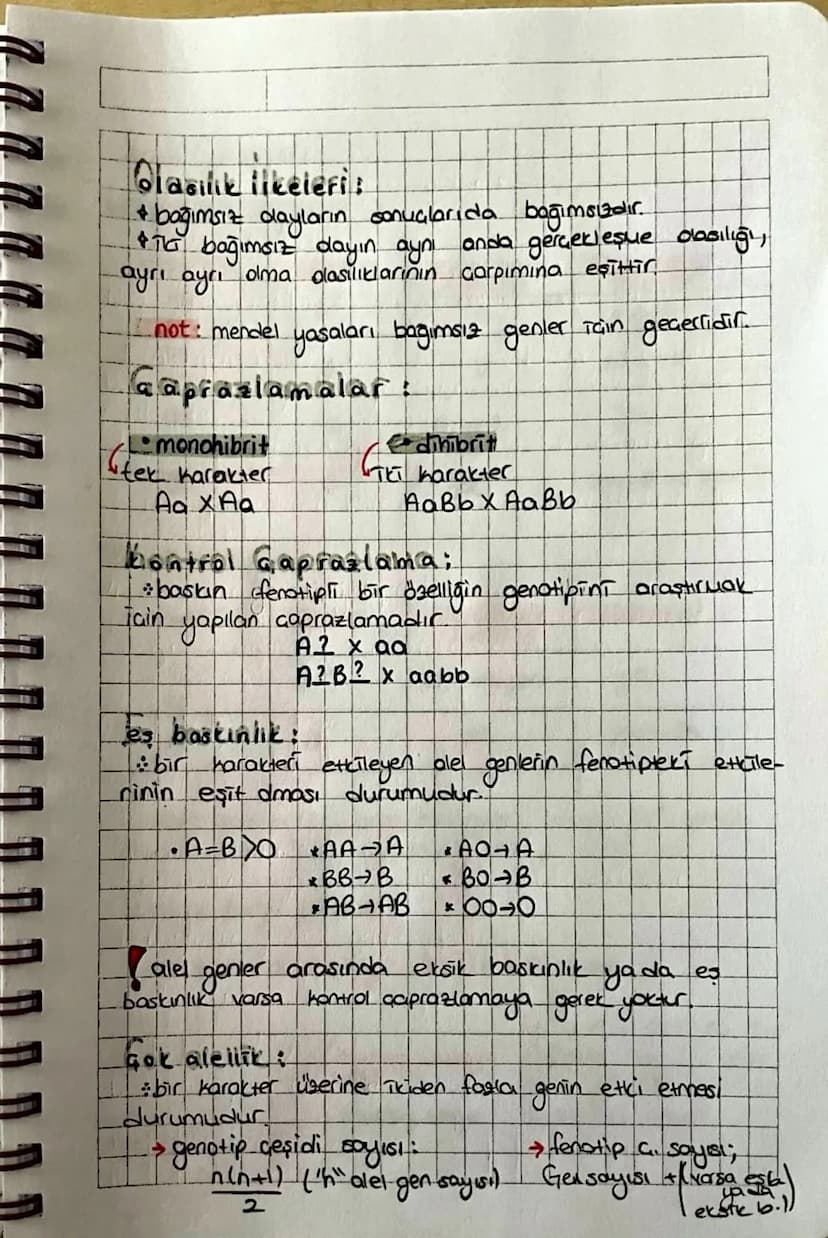 Olasılık İlkeleri:
* bağımsız olayların sonuçlarıda bağımsızdır.
* iki bağımsız olayın aynı anda gerçekleşme olasılığı,
ayrı ayrı olma olasılıklarının çarpımına eşittir.
not: mendel yasaları bağımsız genler için geçerlidir.
Çaprazlamalar:
monohibrit dihibrit
tek karakter iki karakter
Aa X Aa AaBb X AaBb
Kontrol Çaprazlama;
baskın fenotipli bir özelliğin genotipini araştırmak
için yapılan çaprazlamadır.
A? x aa
A?B? x aabb
Eş baskınlık:
bir karakteri etkileyen alel genlerin fenotipteki etkile-
rinin eşit olması durumudur.
• A=B>O *AA→A *AO→A
*BB→B *BO→B
*AB→AB *OO→O
! alel genler arasında eksik baskınlık yada eş
baskınlık varsa kontrol çaprazlamaya gerek yoktur.
Çok alellik:
bir karakter üzerine ikiden fazla genin etki etmesi
durumudur.
→ genotip çeşidi sayısı: → fenotip ç. sayısı;
n(n+1)/2 ("n" alel gen sayısı) Gen sayısı + (varsa eş b.
ya da
eksik b.)